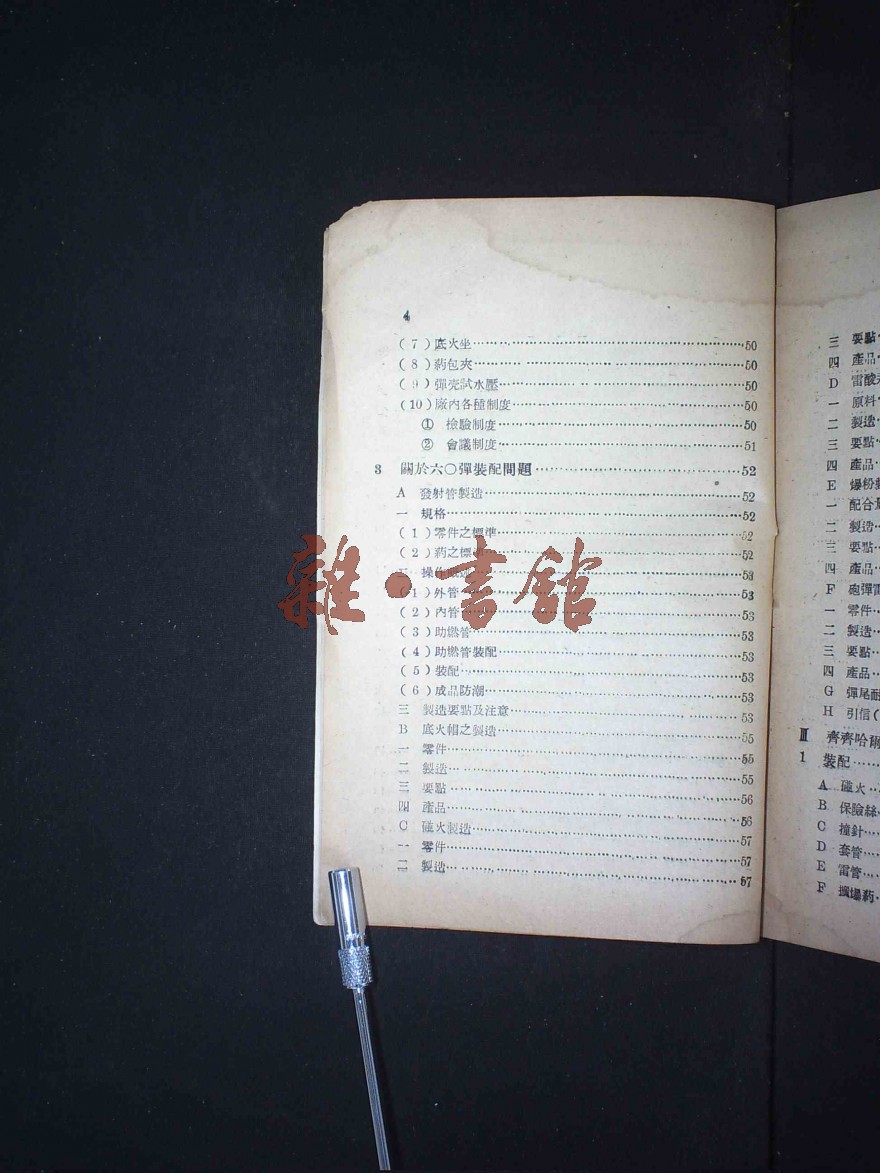 4
(7)底火坐……50
(8)葯包夾……50
(9)彈壳試水壓……50
(10)廠內各種制度……50
① 檢驗制度……50
② 會議制度……51
3 關於六〇彈裝配問題……52
A 發射管製造……52
一 規格……52
(1)零件之標準……52
(2)葯之標……52
操作……53
(1)外管……53
(2)內管……53
(3)助燃管……53
(4)助燃管裝配……53
(5)裝配……53
(6)成品防潮……53
三 製造要點及注意……53
B 底火帽之製造……55
一 零件……55
二 製造……55
三 要點……56
四 產品……56
C 磁火製造……57
一 零件……57
二 製造……57
雜·書館
三 要點
四 產品
D 雷酸
一 原料
二 製造
三 要點
四 產品
E 爆粉
一 配合
二 製造
三 要點
四 產品
F 砲彈
一 零件
二 製造
三 要點
四 產品
G 彈尾
H 引信(
Ⅲ 齊齊哈爾
1 裝配……
A 磁火
B 保險絲
C 撞針
D 套管
E 雷管
F 爆葯